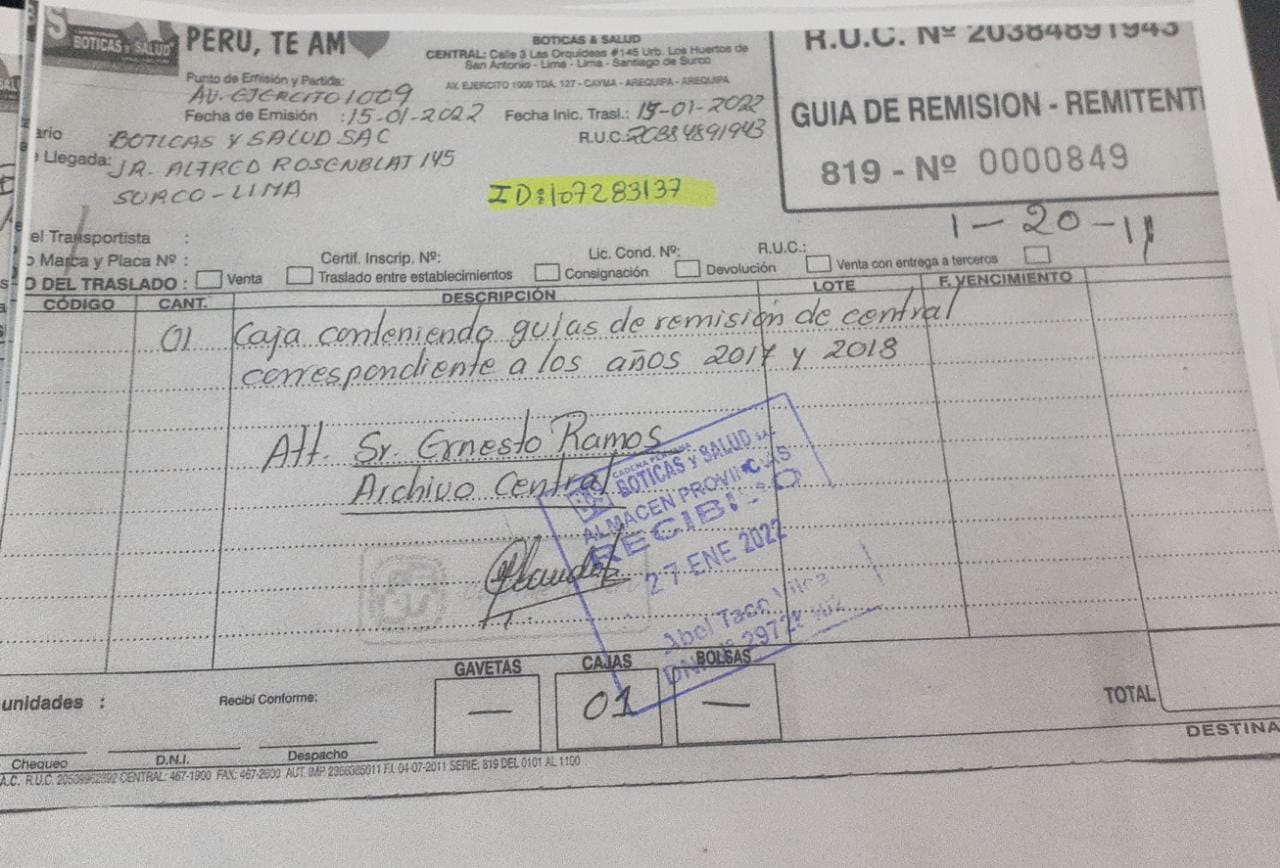 BOTICAS y SALUD
PERU, TE AM
BOTICAS & SALUD
CENTRAL: Calle 3 Las Orquideas #145 Urb. Los Huertos de
San Antonio - Lima - Lima - Santiago de Surco
AV. EJERCITO 1009 TDA. 127 - CAYMA - AREQUIPA - AREQUIPA
R.U.C. Nº 20384891943
GUIA DE REMISION - REMITENT
819 - Nº 0000849
Punto de Emisión y Partida:
AV. EJERCITO 1009
Fecha de Emisión : 15-01-2022 Fecha Inic. Trasl.: 15-01-2022
ario BOTICAS Y SALUD SAC R.U.C.: 20384891943
Llegada: JR. ALFRED ROSENBLAT 145
SURCO-LIMA
ID:107283137
1-20-11
el Transportista :
Marca y Placa Nº : Certif. Inscrip. Nº: Lic. Cond. Nº: R.U.C.:
O DEL TRASLADO : Venta Traslado entre establecimientos Consignación Devolución Venta con entrega a terceros
CÓDIGO CANT. DESCRIPCIÓN LOTE F. VENCIMIENTO
01 Caja conteniendo guías de remisión de central
correspondiente a los años 2017 y 2018
Att. Sr. Ernesto Ramos
Archivo Central
CADENA PERUANA
BOTICAS y SALUD S.A.C.
ALMACEN PROVINCIAS
RECIBIDO
27 ENE 2022
Abel Taco
DNI
GAVETAS CAJAS BOLSAS
— 01 —
unidades : Recibí Conforme: TOTAL
Chequeo D.N.I. Despacho DESTINA
A.C. R.U.C. CENTRAL: 467-1900 FAX: 467-2600 AUT. IMP F.I. 04-07-2011 SERIE: 819 DEL 0101 AL 1100